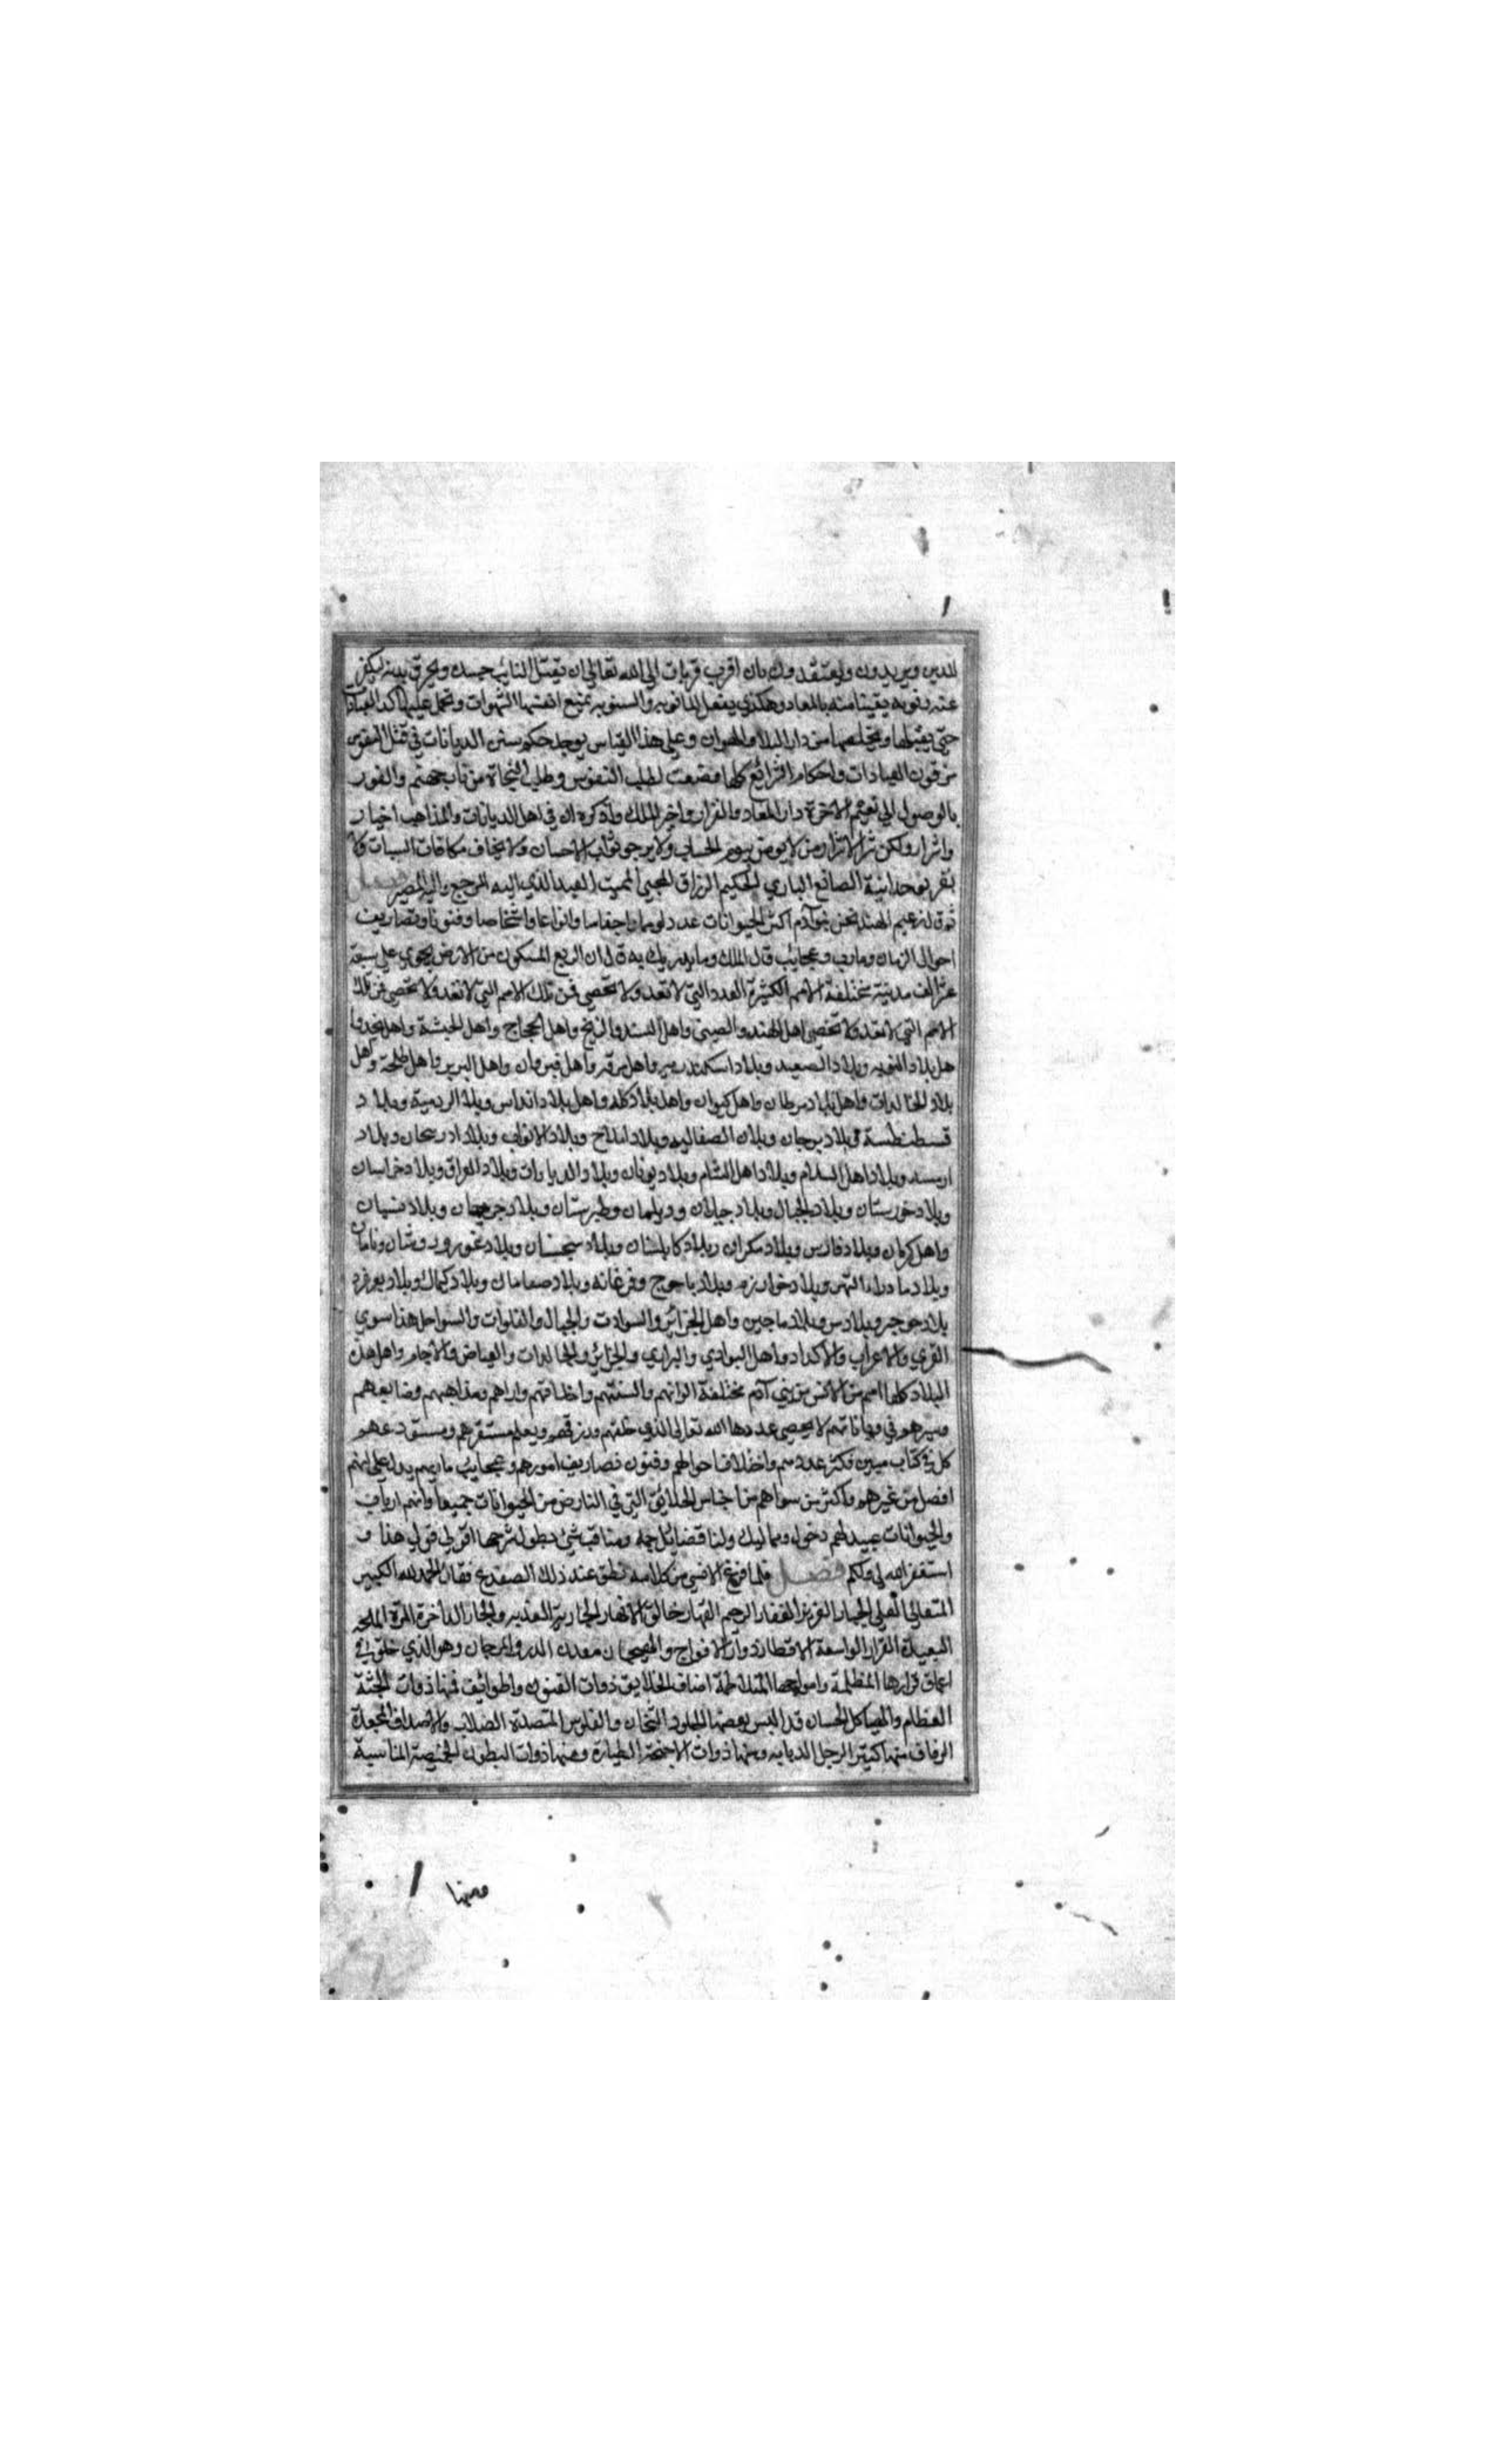 للدين ويريدون ويعتقدون بان اقرب قربات الى الله تعالى ان يقتل التائب جسده ويحرق بدنه ليكفر
عنه ذنوبه يقينا منه بالمعاد وهكذي يفعل المانويه والسنويه بمنع انفسها الشهوات وتحمل عليها كد العبادات
حتي يقتلها ويخلصها من دار البلاء والهوان وعلي هذا القياس يوجد حكم سنن الديانات في قتل النفوس
من فنون العبادات واحكام الشرائع كلها وضعت لطلب النفوس وطلب النجاة من نار جهنم والفوز
بالوصول الي نعيم الاخرة دار المعاد والقرار واخبر الملك واذكره ان في اهل الديانات والمذاهب اخيار
واشرار ولكن شر الاشرار من لا يومن بيوم الحساب ولا يرجو ثواب الاحسان ولا يخاف مكافات السيات ولا
يقر بوحدانية الصانع الباري الحكيم الرزاق المحيي المميت المعيد الذي اليه المرجع واليه المصير فصل
ثم قال زعيم الهند نحن بنو آدم اكثر الحيوانات عددا واجناسا وانواعا واشخاصا وفنونا وتصاريف
احوال الزمان ومارب وعجايب قال الملك وما يدريك به قال ان الربع المسكون من الارض يحوي علي سبعة
عشر الف مدينة مختلفة الامم الكثيرة العدد التي لا تعد ولا تحصي فمن تلك الامم التي لا تعد ولا تحصي فمن تلك
الامم التي لا تعد ولا تحصي اهل الهند والصين واهل السند والزنج واهل الحجاج واهل الحبشة واهل نجد وا
هل بلاد النوبه وبلاد الصعيد وبلاد اسكندريه واهل برقه واهل قيروان واهل البربر واهل طنجة واهل
بلاد الخالدات واهل بلاد سرطان واهل كيوان واهل بلاد كله واهل بلاد اندلس وبلاد الرومية وبلاد
قسطنطسة وبلاد برجان وبلاد الصقالبه وبلاد وبلاد الابواب وبلاد ادربيجان وبلاد
وبلاد اهل السلام وبلاد اهل الشام وبلاد يونان وبلاد الديارات وبلاد العراق وبلاد خراسان
وبلاد خورستان وبلاد الجبال وبلاد جيلان وديلمان وطبرستان وبلاد جرجان وبلاد
واهل كرمان وبلاد فارس وبلاد مكران وبلاد كابلستان وبلاد سجستان وبلاد غور
وبلاد ماوراء النهر وبلاد خوارزم وبلاد ياجوج وفرغانه وبلاد وبلاد كيماك وبلاد
بلاد وبلاد وبلاد ماجين واهل الجزائر والسوادت والجبال والفلوات والسواحل هذا سوي
القري والاعراب والاكداد واهل البوادي والبراري والجزائر والخالدات والغياض والاجام واهل هذه
البلاد كلها امم من الانس من بني آدم مختلفة الوانهم والسنتهم واخلاقهم واراهم ومذاهبهم وصنايعهم
وسيرهم في دياناتهم لا يحصي عددها الا الله تعالى الذي خلقهم ورزقهم ويعلم مستقرهم ومستودعهم
كل في كتاب مبين فكثرة عددهم واختلاف احوالهم وفنون تصاريف امورهم وعجايب ماربهم يدل علي انهم
افضل من غيرهم واكثر من سواهم من اجناس الخلايق التي في الارض من الحيوانات جميعا وانهم ارباب
والحيوانات عبيد لهم وخول ومماليك ولنا فضايل جمه ومناقب شتي يطول شرحها اقول قولي هذا و
استغفر الله لي ولكم فصل فلما فرغ الانسي من كلامه نطق عند ذلك الضفدع فقال الحمد لله الكبير
المتعالي العلي الجبار العزيز الغفار الرحيم القهار خالق الانهار الجارية العذبه والبحار الزاخرة المرة المالحة
البعيدة القرار الواسعة الاقطار ذوات الامواج والهيجان معدن الدر والمرجان وهو الذي خلق في
اعماق قرارها المظلمة وامواجها المتلاطمة اصناف الخلايق ذوات الفنون والطوائف فمنها ذوات الجثة
العظام والهياكل الحسان قد البس بعضها الجلود الثخان والفلوس المنضدة الصلاب والاصداف المجعدة
الرقاق منها كثير الرجل الدبابه ومنها ذوات الاجنحة الطيارة ومنها ذوات البطون الخميصة المنسابة
ومنها